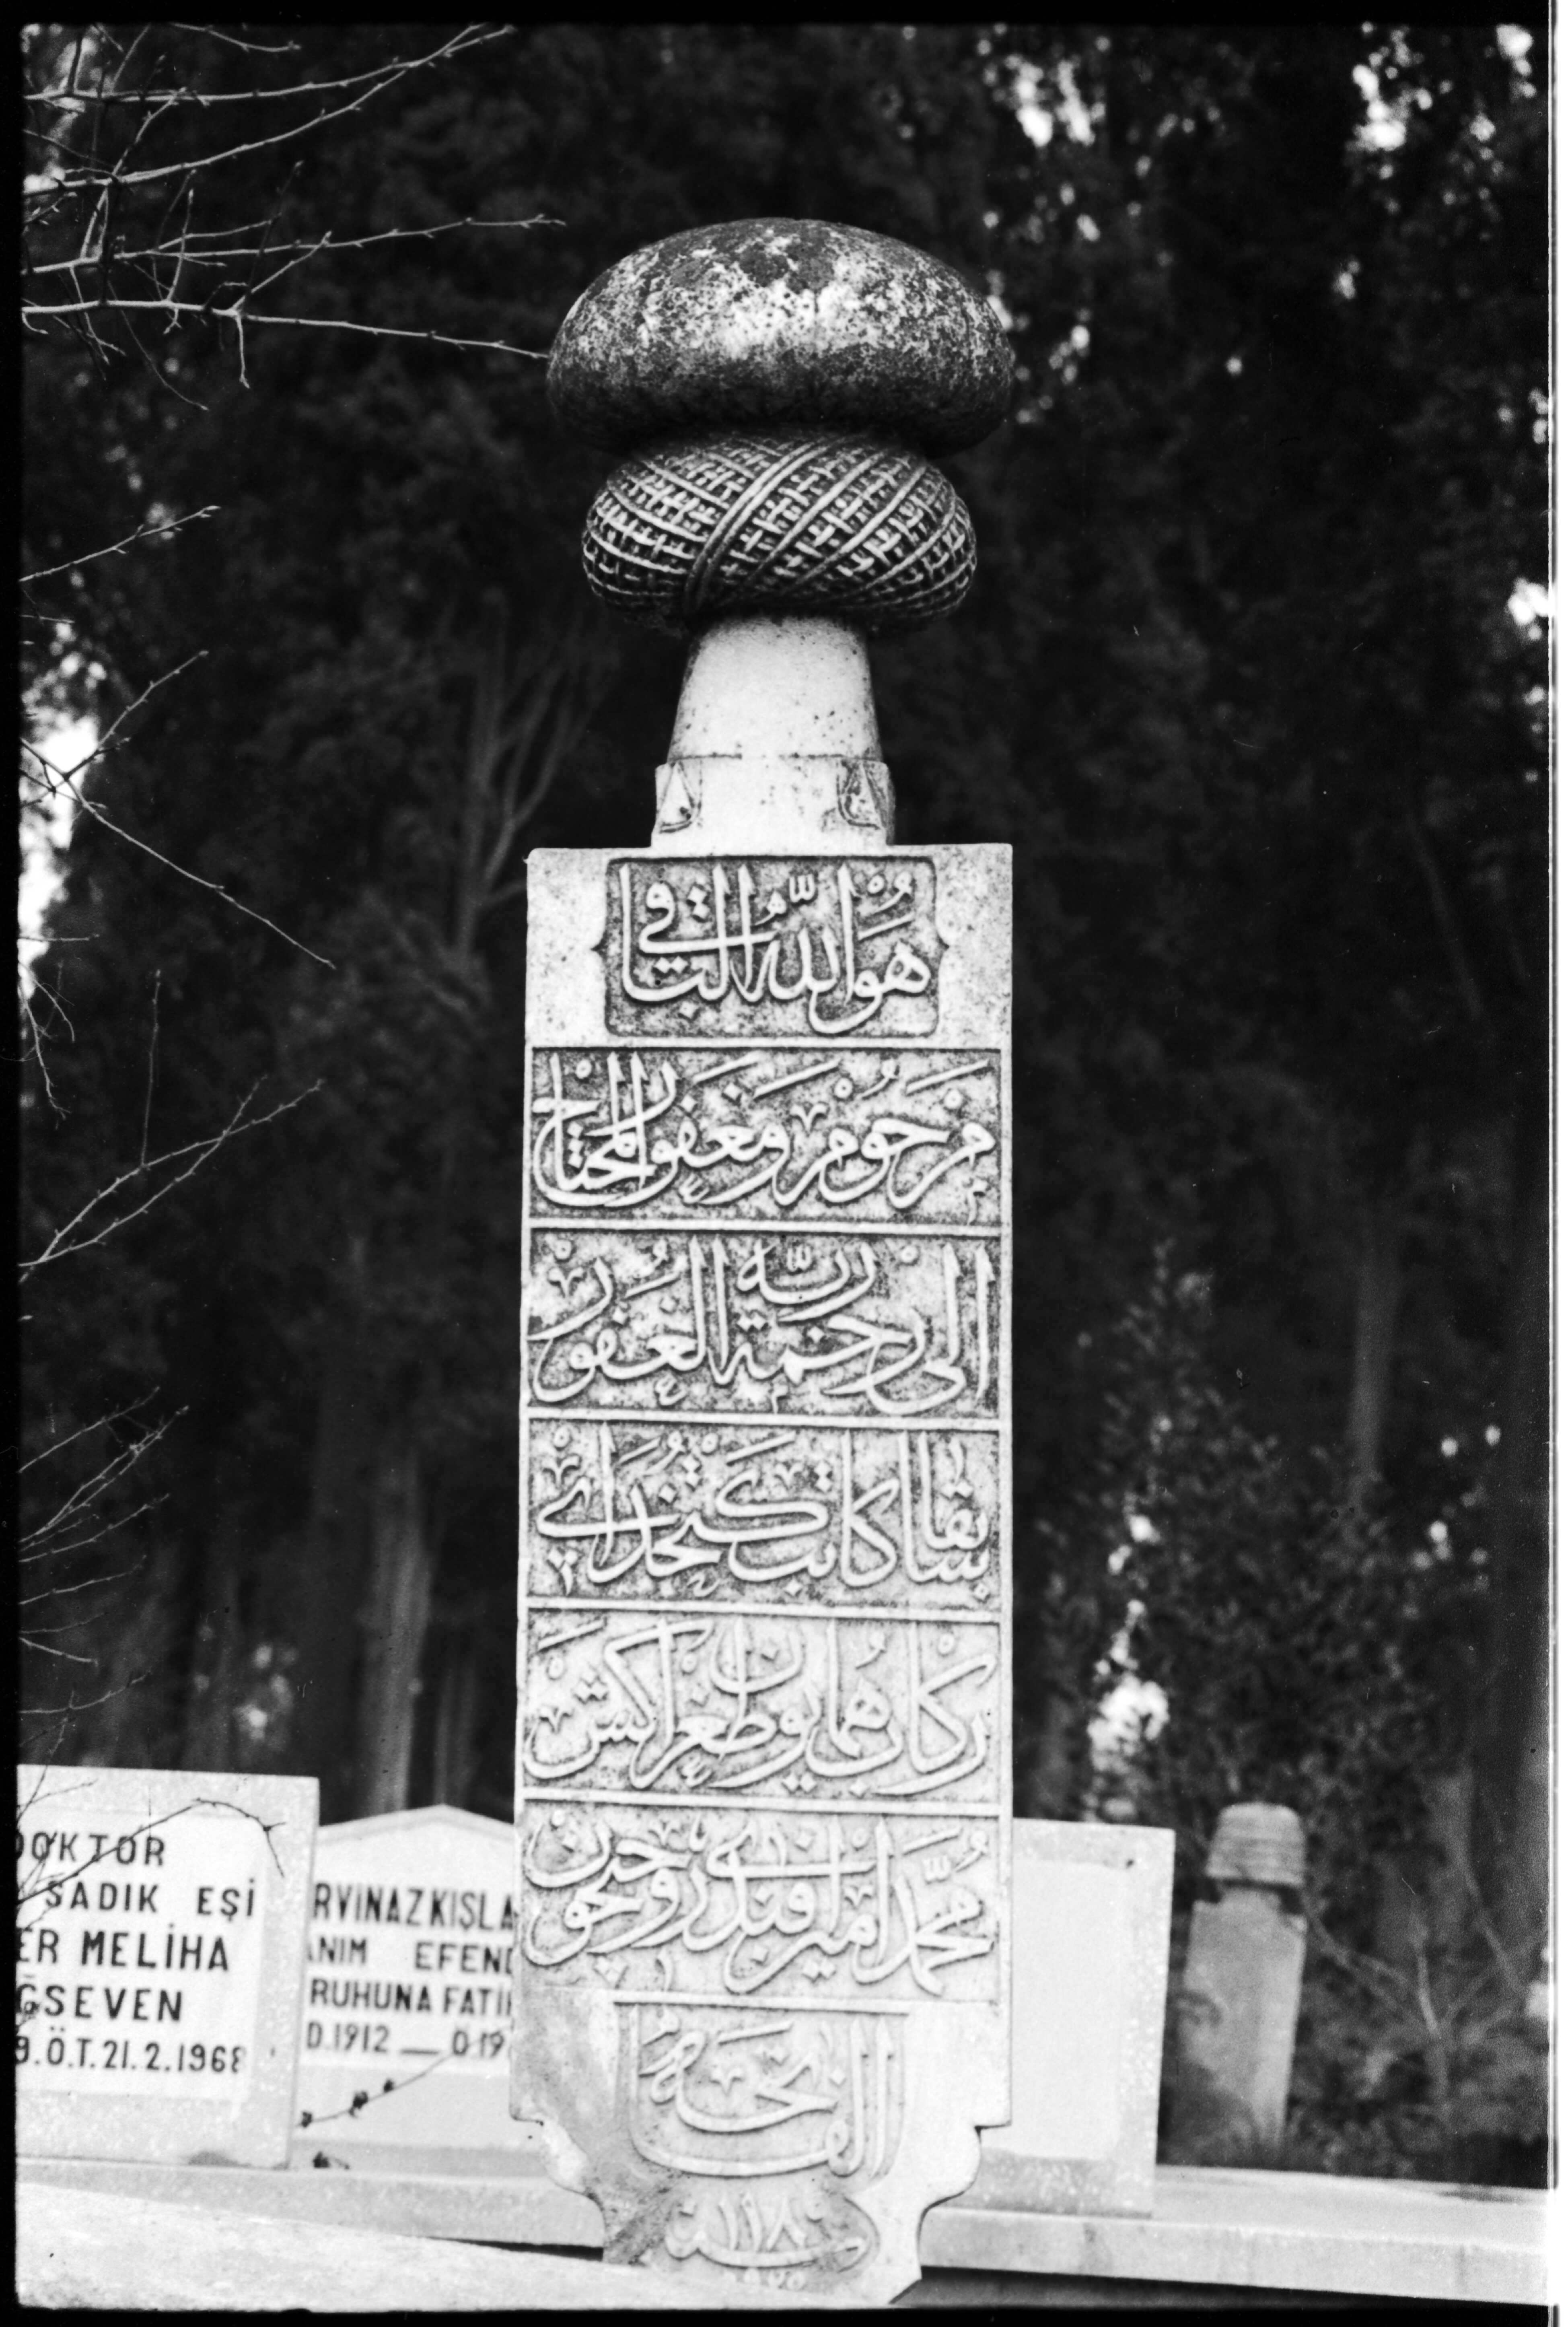 هو الله الباقى
مرحوم ومغفور المحتاج
الى رحمة ربه الغفور
سابقا كاتب كتخداى
ركاب همايون طغراكش
محمد امين افندى روحيچون
الفاتحه
سنة ١١٨
DOKTOR
SADIK EŞİ
ER MELİHA
ĞSEVEN
Ö.T.21.2.1968
RVİNAZ KIŞLA
ANIM EFEND
RUHUNA FATİ
D.1912 — Ö.19